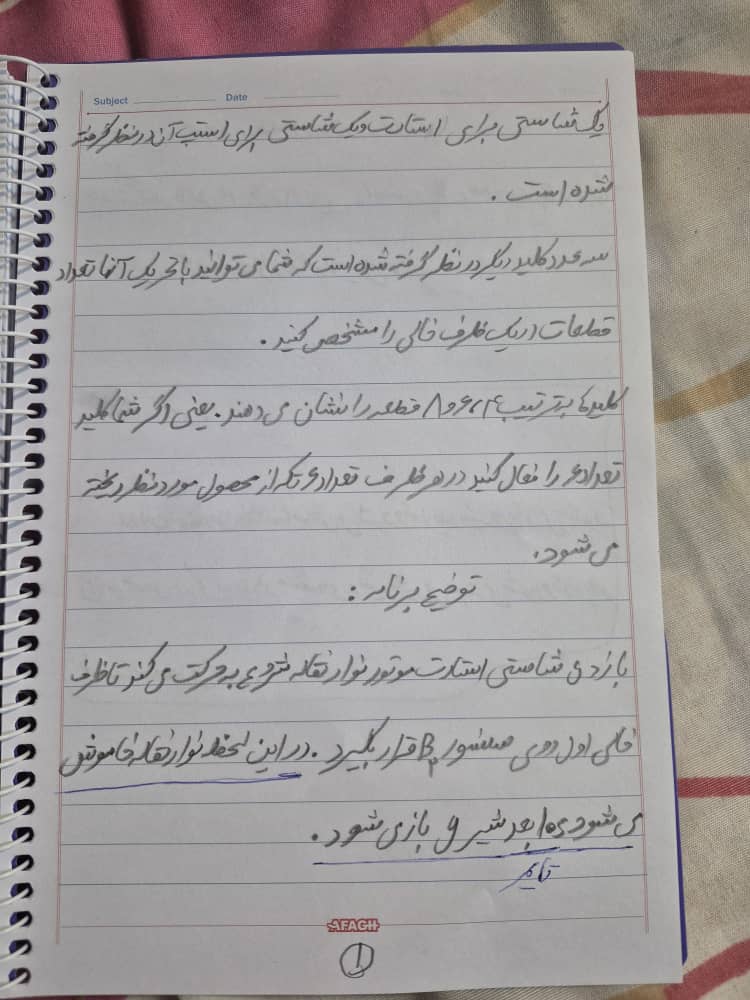 Subject Date
یک شاستی برای استارت و یک شاستی برای استپ آن در نظر گرفته
شده است .
سه عدد کلید دیگر در نظر گرفته شده است که شما می توانید با تحریک آنها تعداد
قطعات در یک ظرف خالی را مشخص کنید .
کلیدها به ترتیب ۴، ۶ و ۸ قطعه را نشان می دهند . یعنی اگر شما کلید
تعداد ۶ را فعال کنید در هر ظرف تعداد ۶ تکه از محصول مورد نظر ریخته
می شود .
توضیح برنامه :
با زدن شاستی استارت موتور نوار نقاله شروع به حرکت می کند تا ظرف
خالی اول روی سنسور B۲ قرار بگیرد . در این لحظه نوار نقاله خاموش
می شود و بعد شیر باز می شود .
تایمر
AFAGH
1